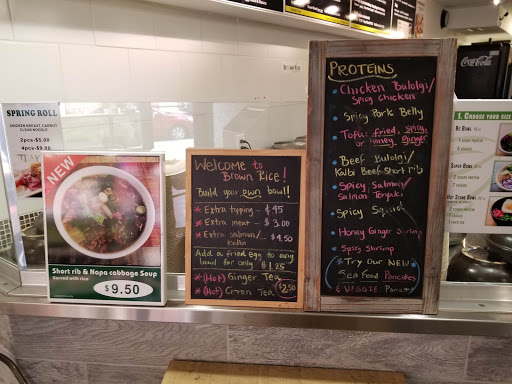 SPRING ROLL
CHICKEN BREAST, CARROT
CLEAR NOODLE
2pcs-$5.00
4pcs-$9.00
NEW
Short rib & Napa cabbage Soup
Served with rice
$9.50
Welcome to
Brown Rice!
Build your own bowl!
* Extra topping
* Extra meat - $3.00
* Extra salmon/ $4.50
kalbi
Add a fried egg to any
bowl for only $1.25
* (Hot) Ginger Tea
* (Hot) Citron Tea $2.50
PROTEINS
Chicken Bulolgi/
Spicy Chicken
Spicy Pork Belly
Tofu: fried, spicy,
or honey ginger
Beef Bulolgi/
Kalbi Beef Short rib
Spicy Salmon/
Salmon Teriyaki
Spicy Squid
Honey Ginger Shrimp
Spicy Shrimp
* Try Our NEW
Sea food Pancakes
& VEGGIE Pancakes
Coca-Cola
1. CHOOSE YOUR SIZE